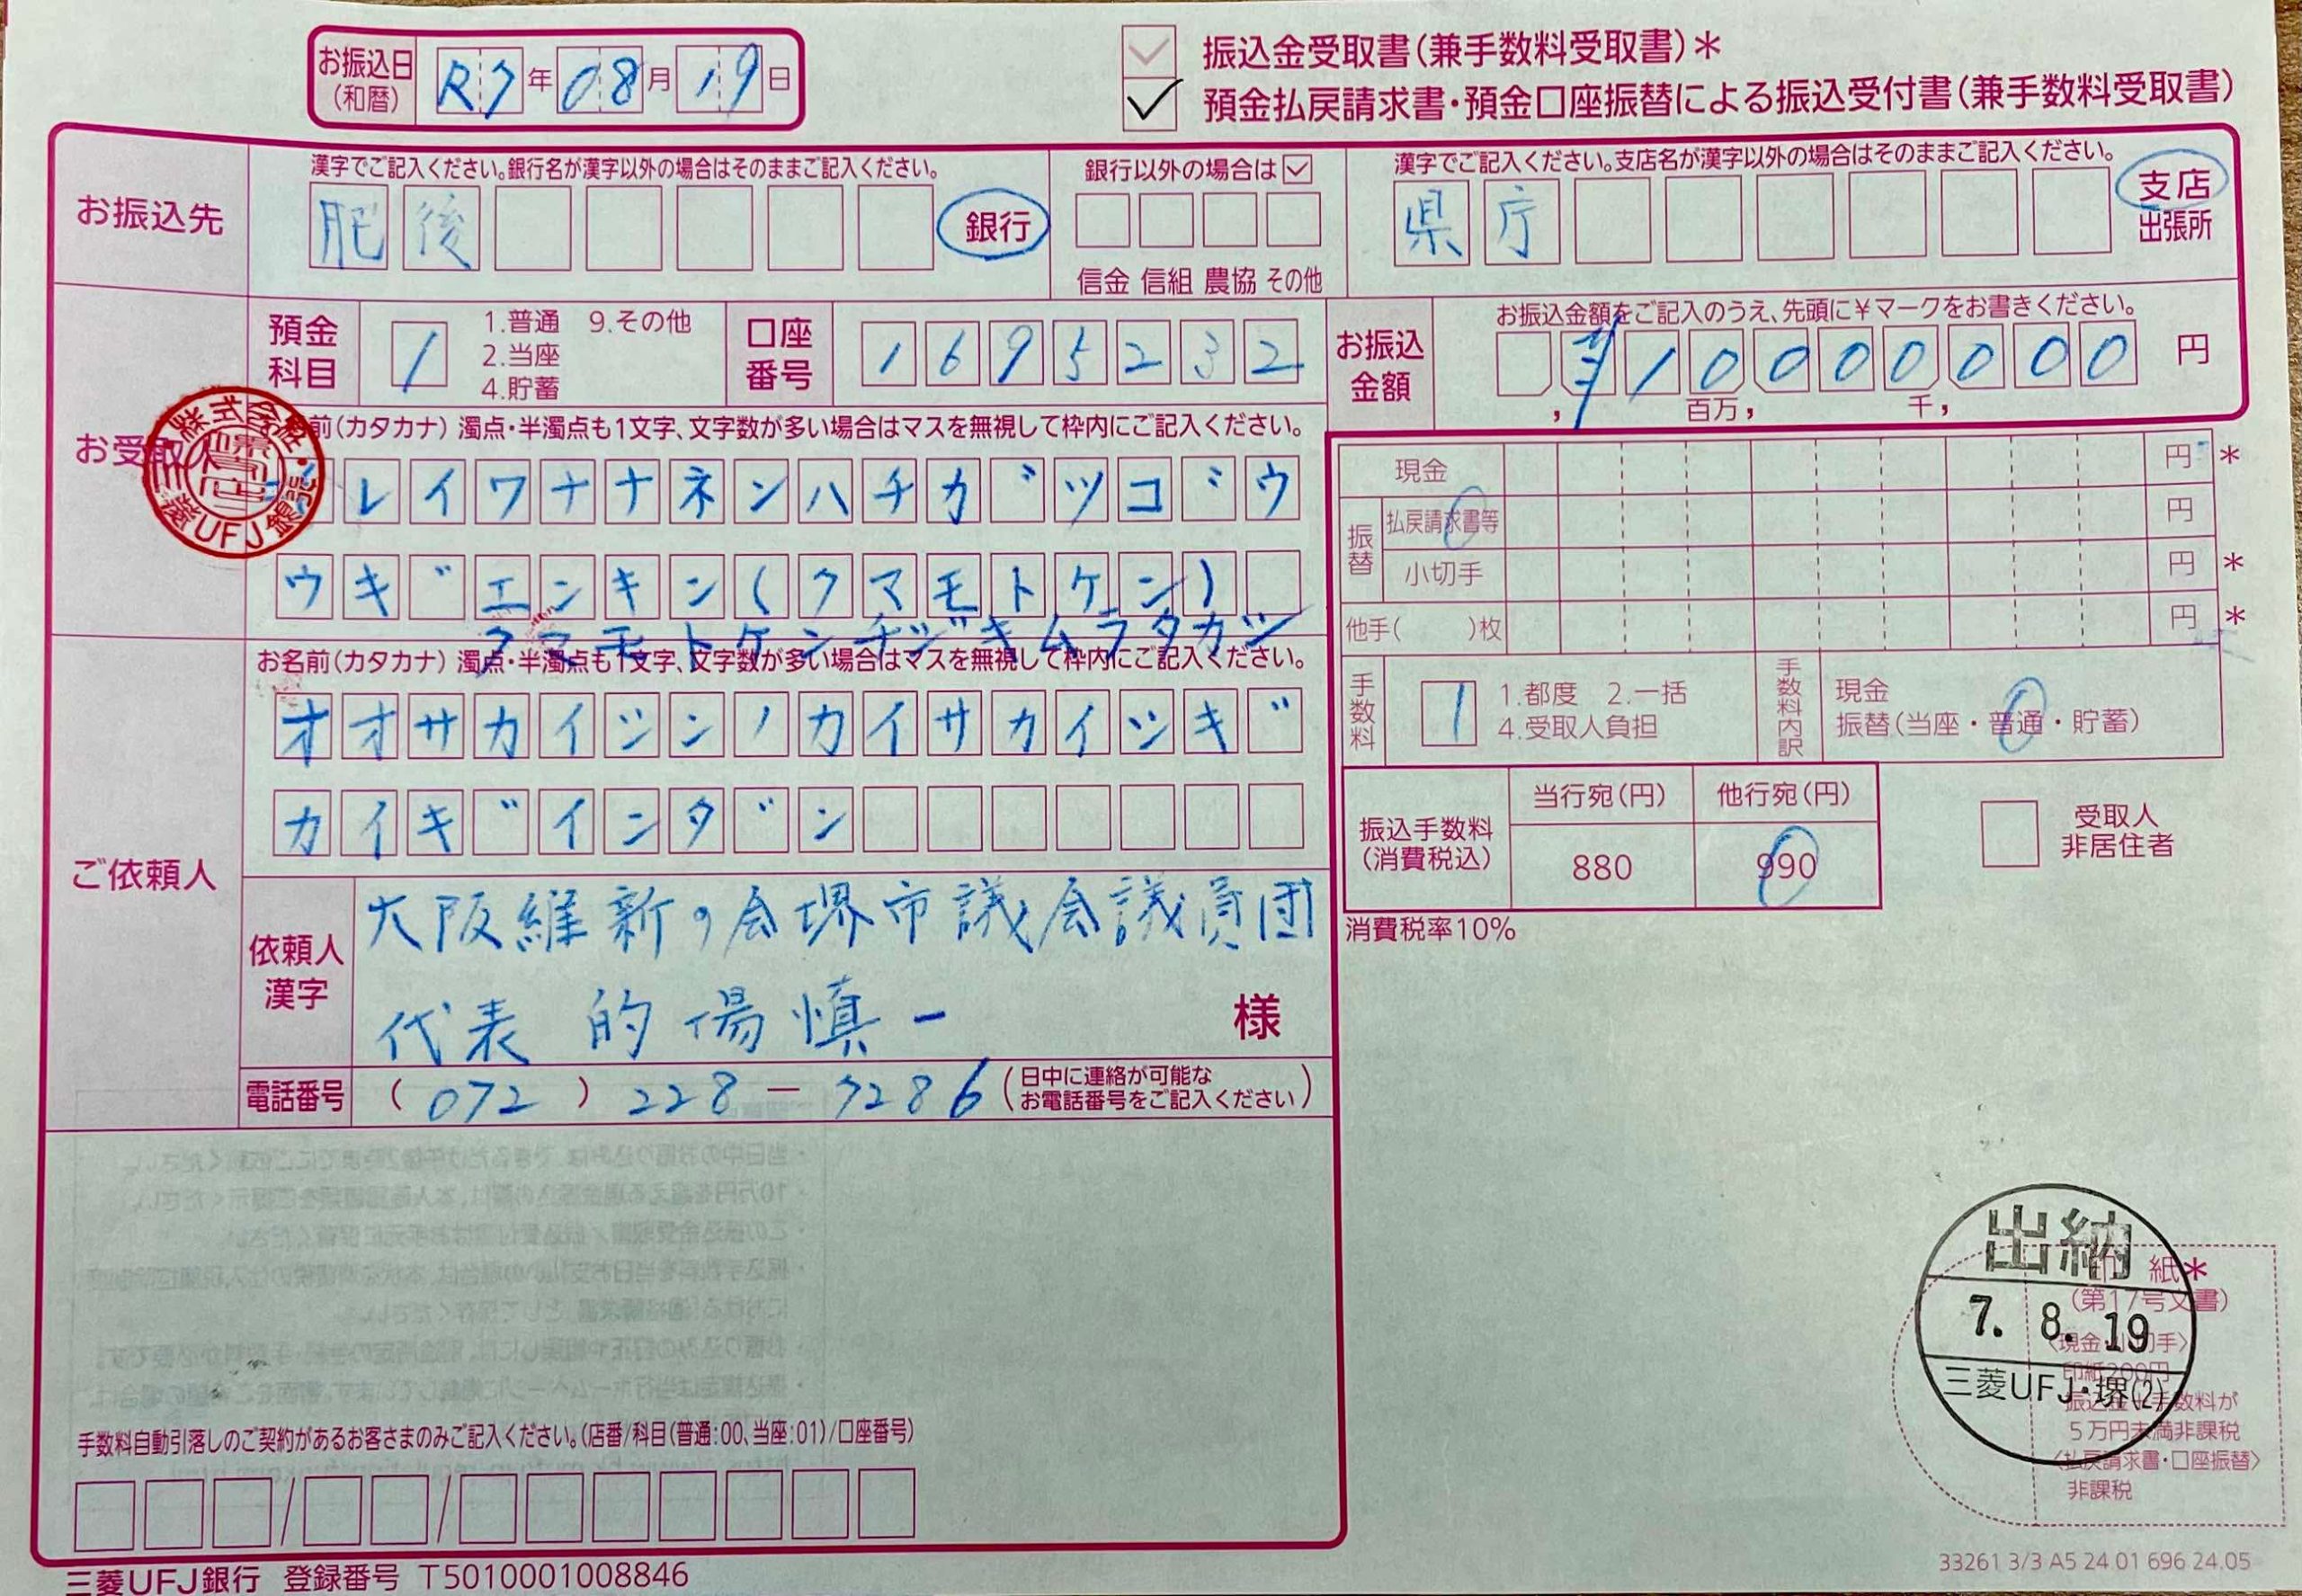 お振込日
(和暦)
R7年08月19日
振込金受取書(兼手数料受取書)*
預金払戻請求書・預金口座振替による振込受付書(兼手数料受取書)
お振込先
漢字でご記入ください。銀行名が漢字以外の場合はそのままご記入ください。
肥後 銀行
銀行以外の場合は☑
信金 信組 農協 その他
漢字でご記入ください。支店名が漢字以外の場合はそのままご記入ください。
県庁 支店
出張所
預金科目
1
1.普通 9.その他
2.当座
4.貯蓄
口座番号
1695232
お振込金額
お振込金額をご記入のうえ、先頭に¥マークをお書きください。
¥10000000円
百万, 千,
お受取
前(カタカナ) 濁点・半濁点も1文字、文字数が多い場合はマスを無視して枠内にご記入ください。
株式会社
三菱UFJ銀行
レイワナナネンハチカ゛ツコ゛ウ
ウキ゛エンキン(クマモトケン)
クマモトケンチジキムラタカシ
ご依頼人
お名前(カタカナ) 濁点・半濁点も1文字、文字数が多い場合はマスを無視して枠内にご記入ください。
オオサカイシンノカイサカイシキ゛
カイキ゛インタ゛ン
依頼人漢字
大阪維新の会堺市議会議員団
代表 的場慎一 様
電話番号
(072)228-7286
(日中に連絡が可能な
お電話番号をご記入ください)
現金 円*
振替
払戻請求書等 円
小切手 円*
他手( )枚 円*
手数料
1
1.都度 2.一括
4.受取人負担
手数料内訳
現金
振替(当座・普通・貯蓄)
振込手数料
(消費税込)
当行宛(円) 他行宛(円)
880 990
消費税率10%
受取人
非居住者
出納
7. 8. 19
三菱UFJ・堺(2)
印紙*
(第17号文書)
〈現金・小切手〉
印紙200円
振込金+手数料が
5万円未満非課税
〈払戻請求書・口座振替〉
非課税
手数料自動引落しのご契約があるお客さまのみご記入ください。(店番/科目(普通:00、当座:01)/口座番号)
三菱UFJ銀行 登録番号 T5010001008846
33261 3/3 A5 24.01 696 24.05